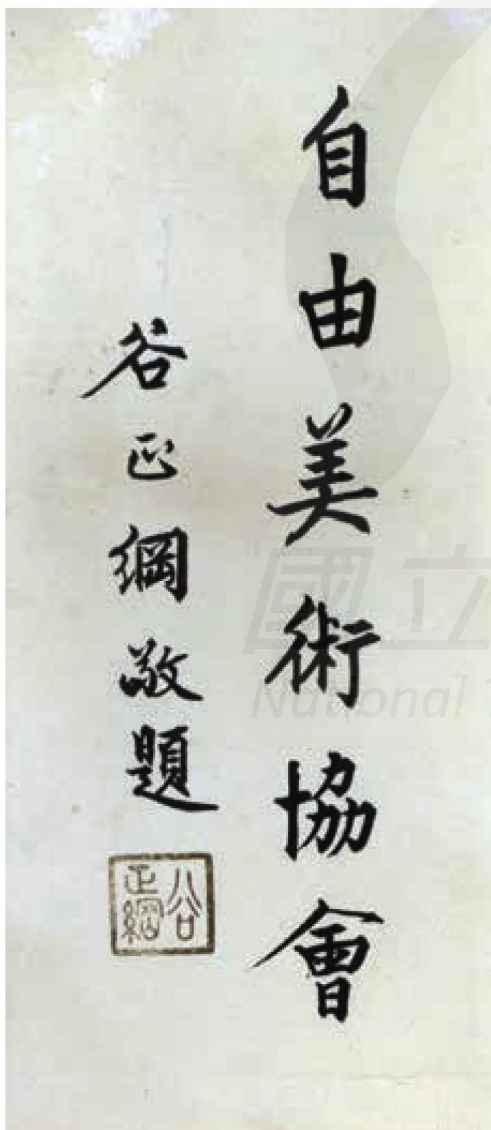 自由美術協會
谷正綱敬題
谷正綱
國立
National